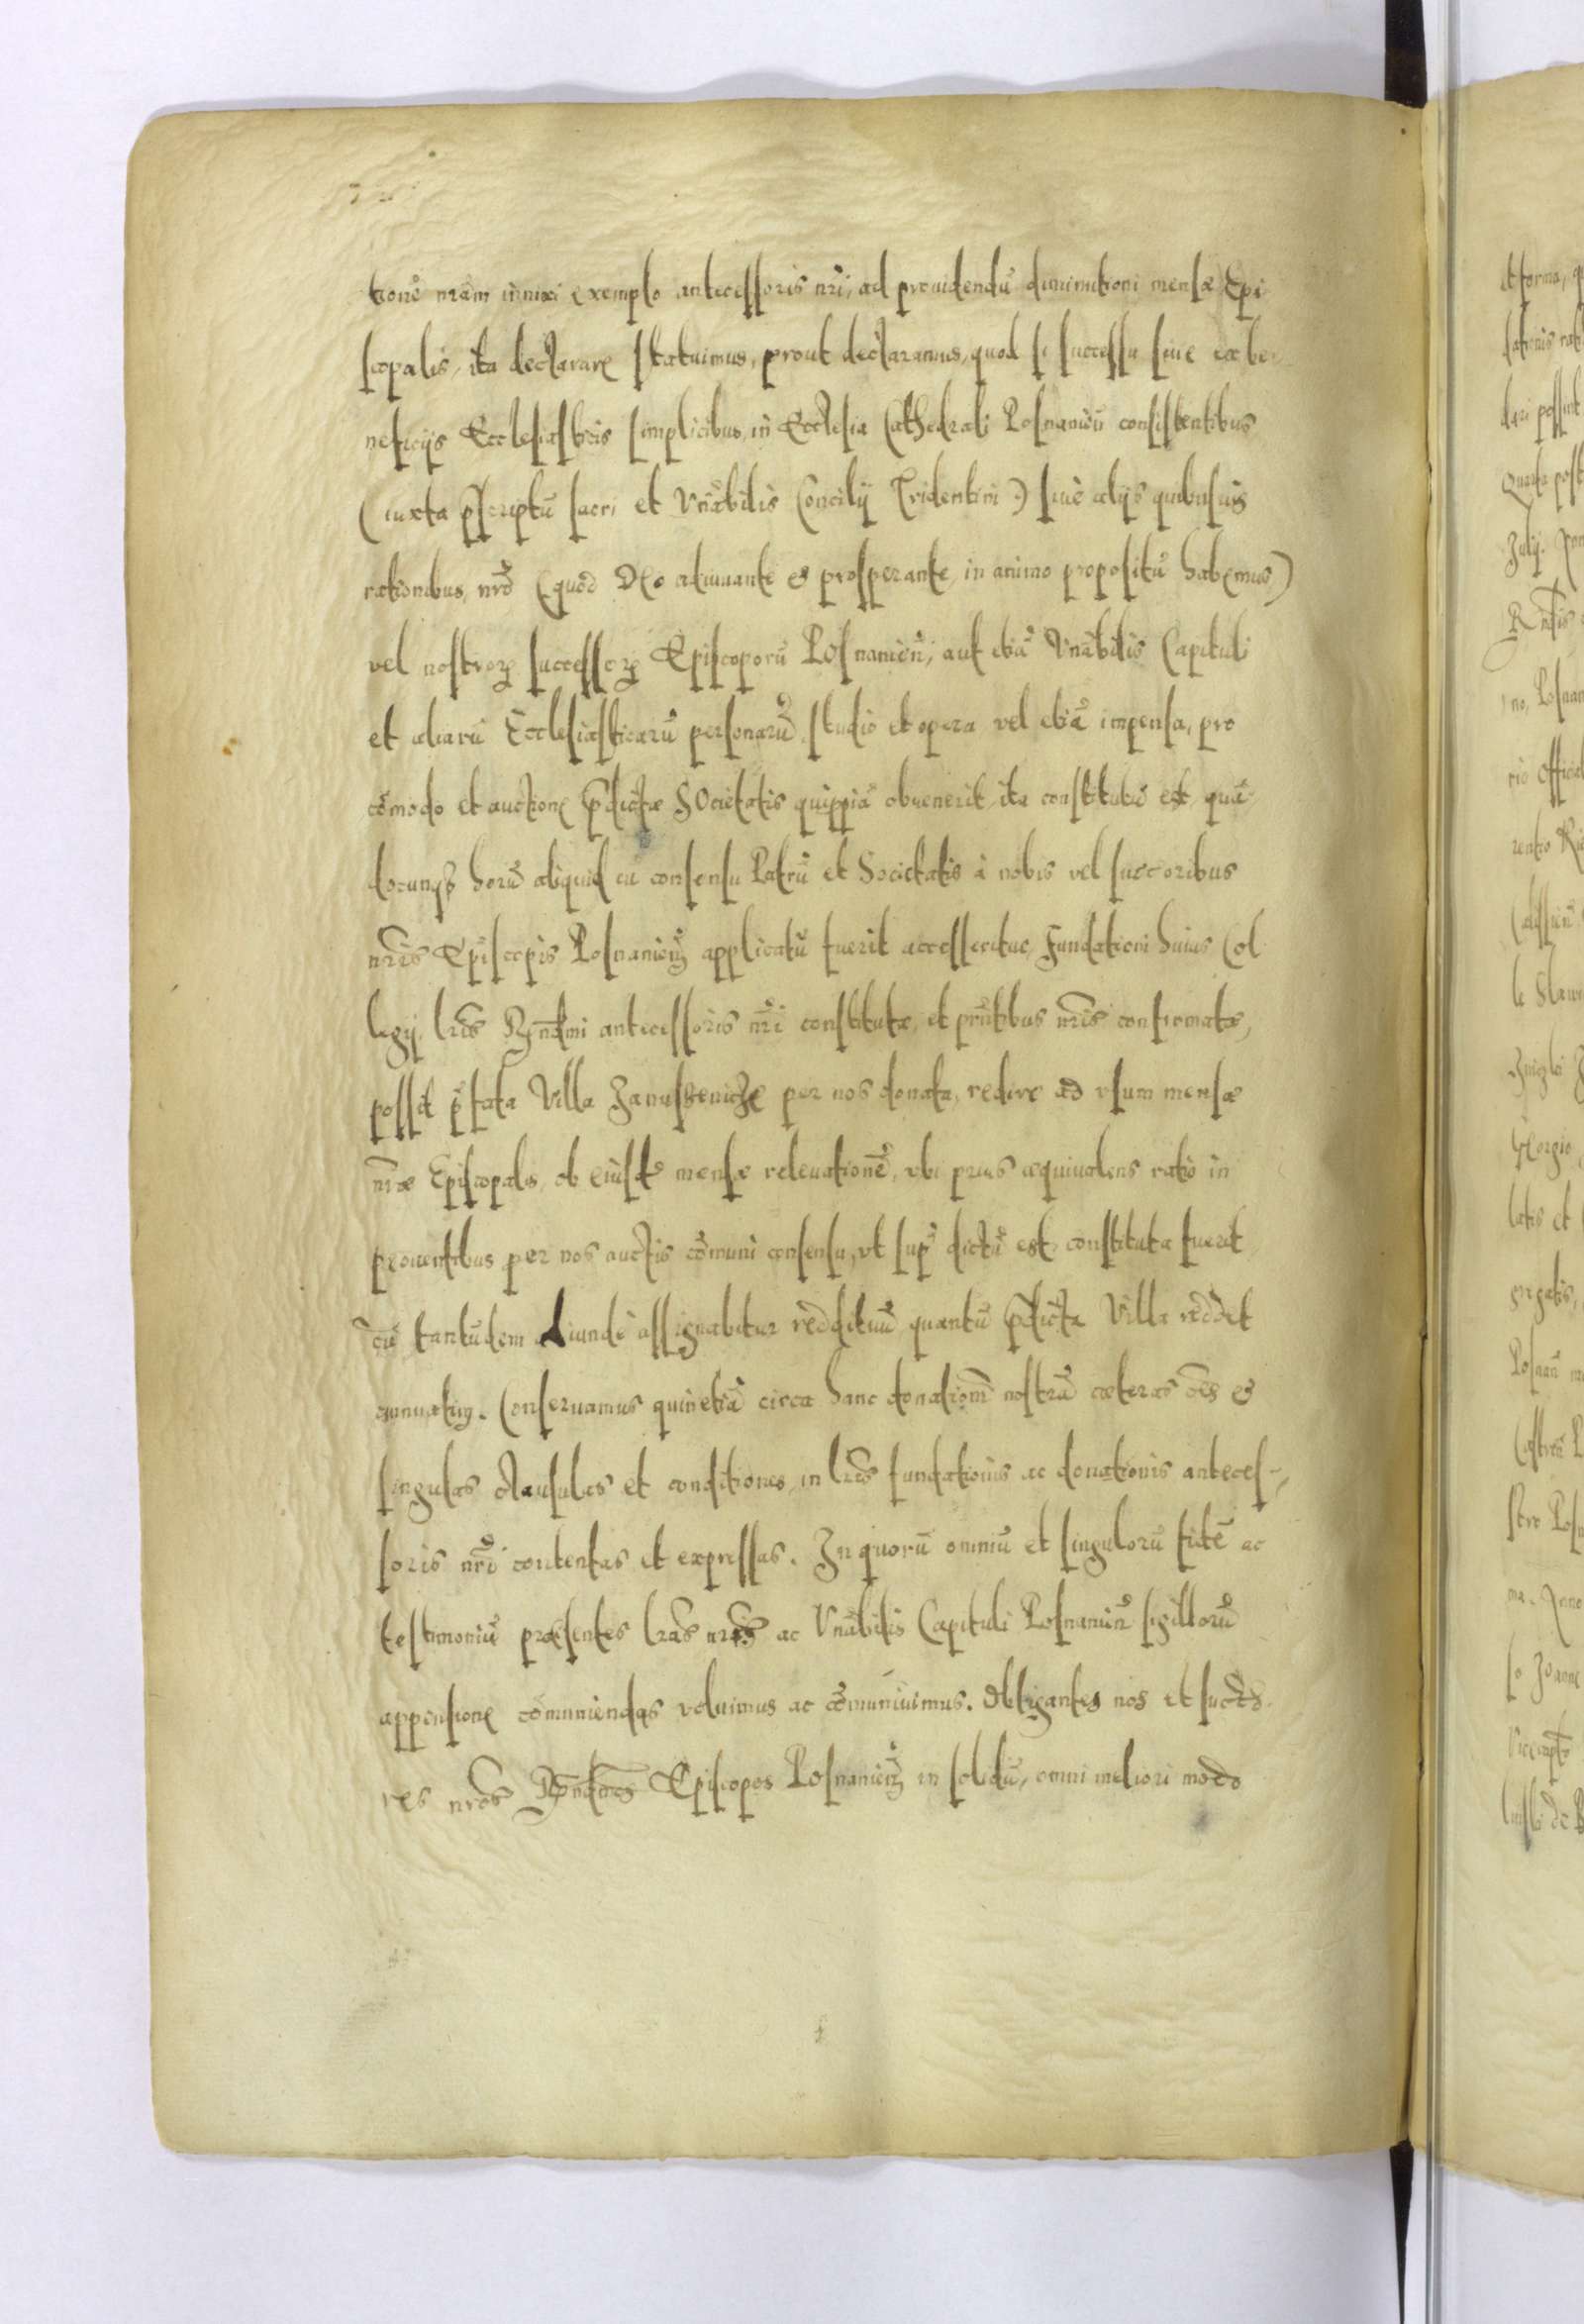 tionē nrām innixi exemplo antecessoris nrī, ad prouidendū diminutioni mensæ Epi
scopalis, ita declarare statuimus, prout declaramus, quod si successu siue ex be-
neficijs Ecclesiasticis simplicibus, in Ecclesia Cathedrali Posnanieñ consistentibus
(iuxta pscriptū sacri et Vnābilis Concilij Tridentini) siue alijs quibusuis
rationibus, nrō (quod Deo adiuuante et prosperante, in animo propositū habemus)
vel nostroꝝ successoꝝ Episcoporū Posnanieñ, aut etiā Vnābilis Capituli
et aliarū Ecclesiasticarū personarū, studio et opera vel etiā impensa, pro
cōmodo et auctione p̄dictæ Societatis quippiā obuenerit, ita constitutū est, quā-
docunqȝ horū aliquid cū consensu Patrū et Societatis à nobis vel succoribus
nrīs Episcopis Posnanieñ applicatū fuerit accesseritue Fundationi huius Col
legij, lrīs Rndmi antecessoris nrī constitutæ, et prntibus nrīs confirmatæ,
possit p̄fata Villa Januszewicze per nos donata, redire ad vsum mensæ
nrāe Episcopalis, ob eiusdē mensæ releuationē, vbi prius æquiualens ratio in
prouentibus per nos auctis cōmuni consensu, vt supˢ dictū est, constituta fuerit,
cū tantūdem aliunde assignabitur reddituū, quantū p̄dicta Villa reddet
annuatim. Conseruamus quinetiā circa hanc donationē nostrā cæteras oēs et
singulas clausulas et conditiones, in lrīs fundationis ac donationis anteces-
soris nrī contentas et expressas. In quorū omniū et singulorū fidē ac
testimoniū præsentes lrās nrās ac Vnābilis Capituli Posnanieñ sigillorū
appensione cōmuniendas voluimus ac cōmuniuimus. Obligantes nos et succes-
res nrōs Rndmos Episcopos Posnanieñ in solidū, omni meliori modo